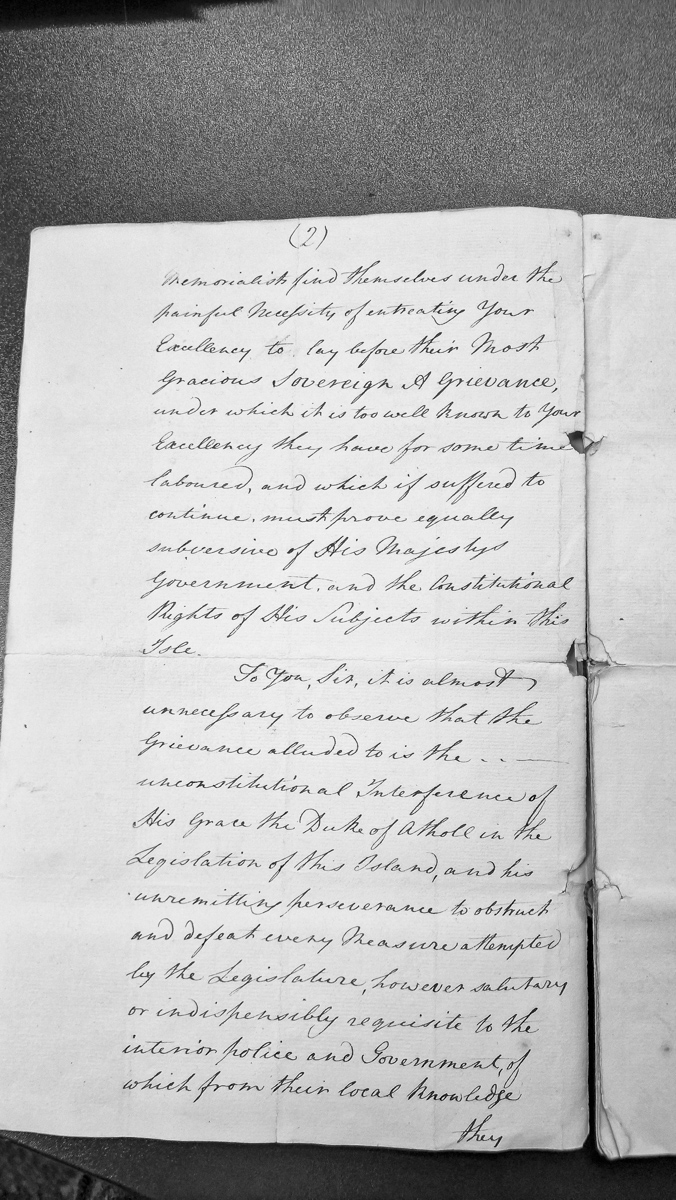 (2)
Memorialists find themselves under the
painful Necessity of entreating Your
Excellency to lay before their Most
Gracious Sovereign A Grievance,
under which it is too well known to Your
Excellency they have for some time
laboured, and which if suffered to
continue, must prove equally
subversive of His Majestys
Government, and the Constitutional
Rights of His Subjects within this
Isle.
To You, Sir, it is almost
unnecessary to observe that the
Grievance alluded to is the . . —
unconstitutional Interference of
His Grace the Duke of Atholl in the
Legislation of this Island, and his
unremitting perseverance to obstruct
and defeat every Measure attempted
by the Legislature, however salutary
or indispensibly requisite to the
interior police and Government, of
which from their local knowledge
they